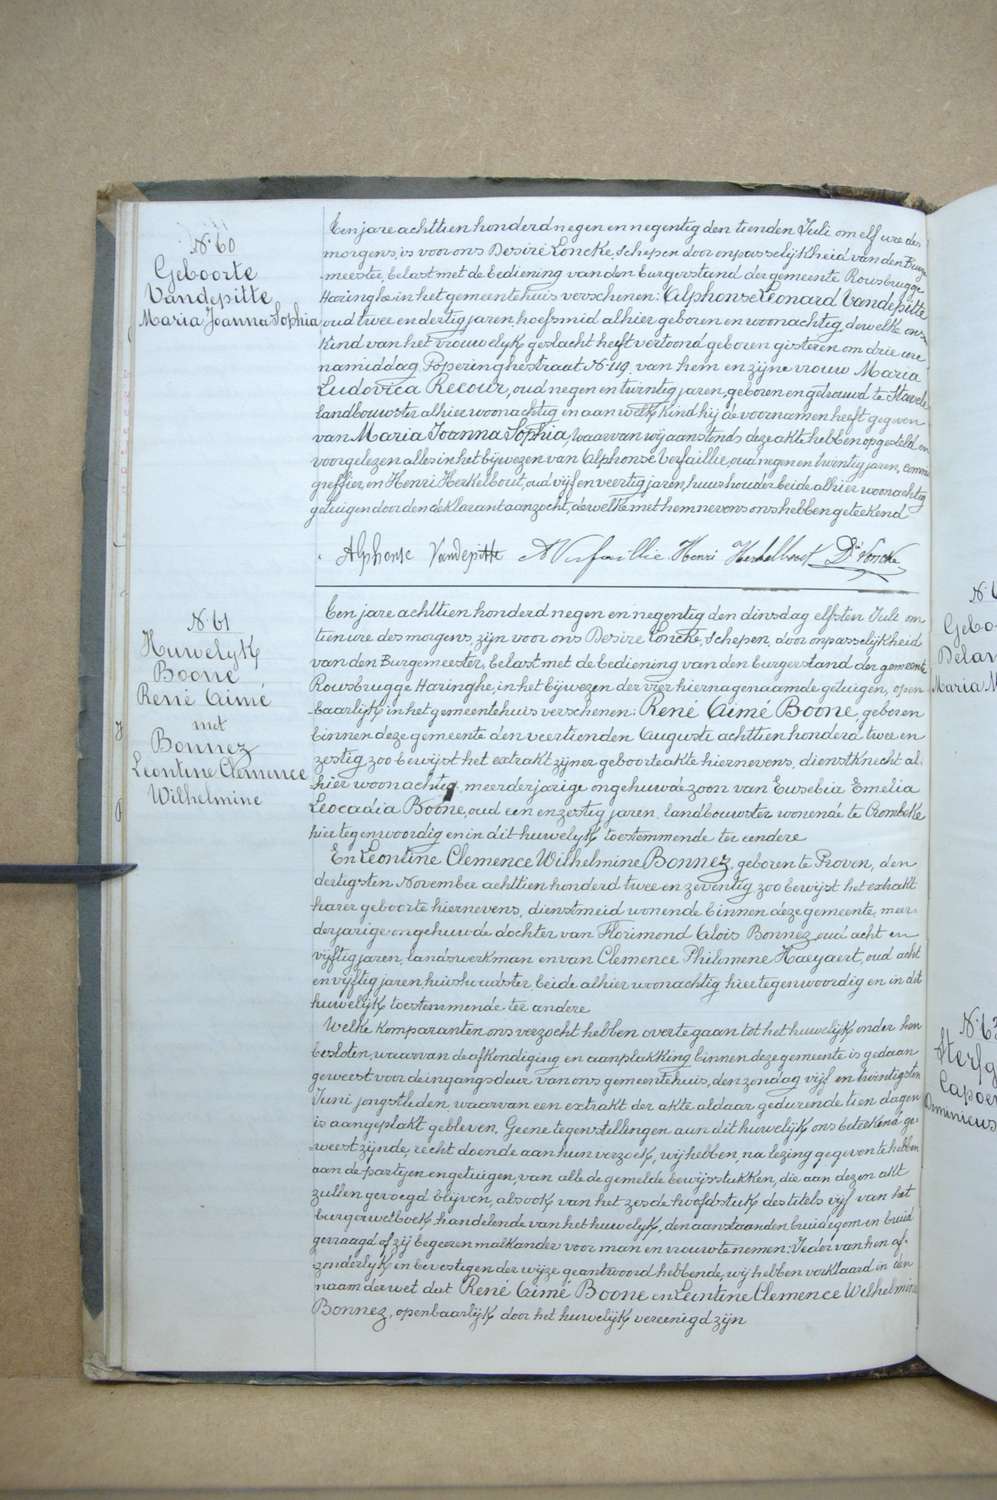 N. 60
Geboorte
Vandepitte
Maria Joanna Sophia
Een jare achttien honderd negen en negentig den tienden Juli om elf ure des
morgens, is voor ons Desiré Loncke, schepen door onpasselijkheid van den Burge
meester, belast met de bediening van den burgerstand der gemeente Rousbrugge
Haringhe in het gemeentehuis verschenen: Alphonse Leonard Vandepitte
oud twee en dertig jaren, hoefsmid alhier geboren en woonachtig, dewelke ons
kind van het vrouwelyk geslacht heeft vertoond geboren gisteren om drie ure
namiddag Poperinghestraat No 119, van hem en zijne vrouw Maria
Ludovica Recour, oud negen en twintig jaren, geboren en getrouwd te Stavele
landbouwster alhier woonachtig en aan welk kind hij de voornamen heeft gegeven
van Maria Joanna Sophia, waarvan wij aanstonds deze akte hebben opgesteld en
voorgelezen alles in het bijwezen van Alphonse Verfaillie, oud negen en twintig jaren, commis
greffier, en Henri Herkelbout, oud vijf en veertig jaren, huurhouder beide alhier woonachtig
getuigen door den deklarant aanzocht, dewelke met hem nevens ons hebben geteekend
Alphonse Vandepitte AVerfaillie Henri Herkelbout Dré Loncke
N. 61
Huwelyk
Boone
René Aimé
met
Bonnez
Leontine Clemence
Wilhelmine
Een jare achttien honderd negen en negentig den dinsdag elfsten Juli om
tien ure des morgens, zijn voor ons Desire Loncke, schepen door onpasselijkheid
van den Burgemeester, belast met de bediening van den burgerstand der gemeente
Rousbrugge Haringhe, in het bijwezen der vier hiernagenaamde getuigen, open
baarlijk in het gemeentehuis verschenen: René Aimé Boone, geboren
binnen deze gemeente den veertienden Auguste achttien honderd twee en
zestig zoo bewijst het extrakt zijner geboorteakte hiernevens, dienstknecht al
hier woonachtig, meerderjarige ongehuwde zoon van Eusebia Emelia
Leocadia Boone, oud een en zestig jaren, landbouwster wonende te Crombeke
hier tegenwoordig en in dit huwelyk toestemmende ter eendere
En Leontine Clemence Wilhelmine Bonnez, geboren te Proven, den
dertigsten November achttien honderd twee en zeventig zoo bewijst het extrakt
harer geboorte hiernevens, dienstmeid wonende binnen deze gemeente, meer
derjarige ongehuwde dochter van Florimond Aloïs Bonnez oud acht en
vijftig jaren, landswerkman en van Clemence Philomene Haeyaert, oud acht
en vijftig jaren, huishoudster, beide alhier woonachtig hier tegenwoordig en in dit
huwelijk toestemmende ter andere
Welke komparanten ons verzocht hebben over te gaan tot het huwelijk onder hen
besloten, waarvan de afkondiging en aanplakking binnen deze gemeente is gedaan
geweest voor de ingangsdeur van ons gemeentehuis, den zondag vijf en twintigsten
Juni jongstleden, waarvan een extrakt der akte aldaar gedurende tien dagen
is aangeplakt gebleven. Geene tegenstellingen aan dit huwelijk ons beteekend ge
weest zijnde, recht doende aan hun verzoek, wij hebben, na lezing gegeven te hebben
aan de partijen en getuigen, van alle de gemelde bewijsstukken, die aan dezen akt
zullen gevoegd blijven, alsook van het zesde hoofdstuk des titels vijf van het
burgerwetboek, handelende van het huwelyk, den aanstaanden bruidegom en bruid
gevraagd of zij begeeren malkander voor man en vrouw te nemen: Ieder van hen af
zonderlijk en bevestigen der wijze geantwoord hebbende, wij hebben verklaard in den
naam der wet dat René Aimé Boone en Leontine Clemence Wilhelmine
Bonnez, openbaarlijk door het huwelijk vereenigd zijn
N. 6
Gebo
Delan
Maria M
N. 63
Sterfg
Capoen